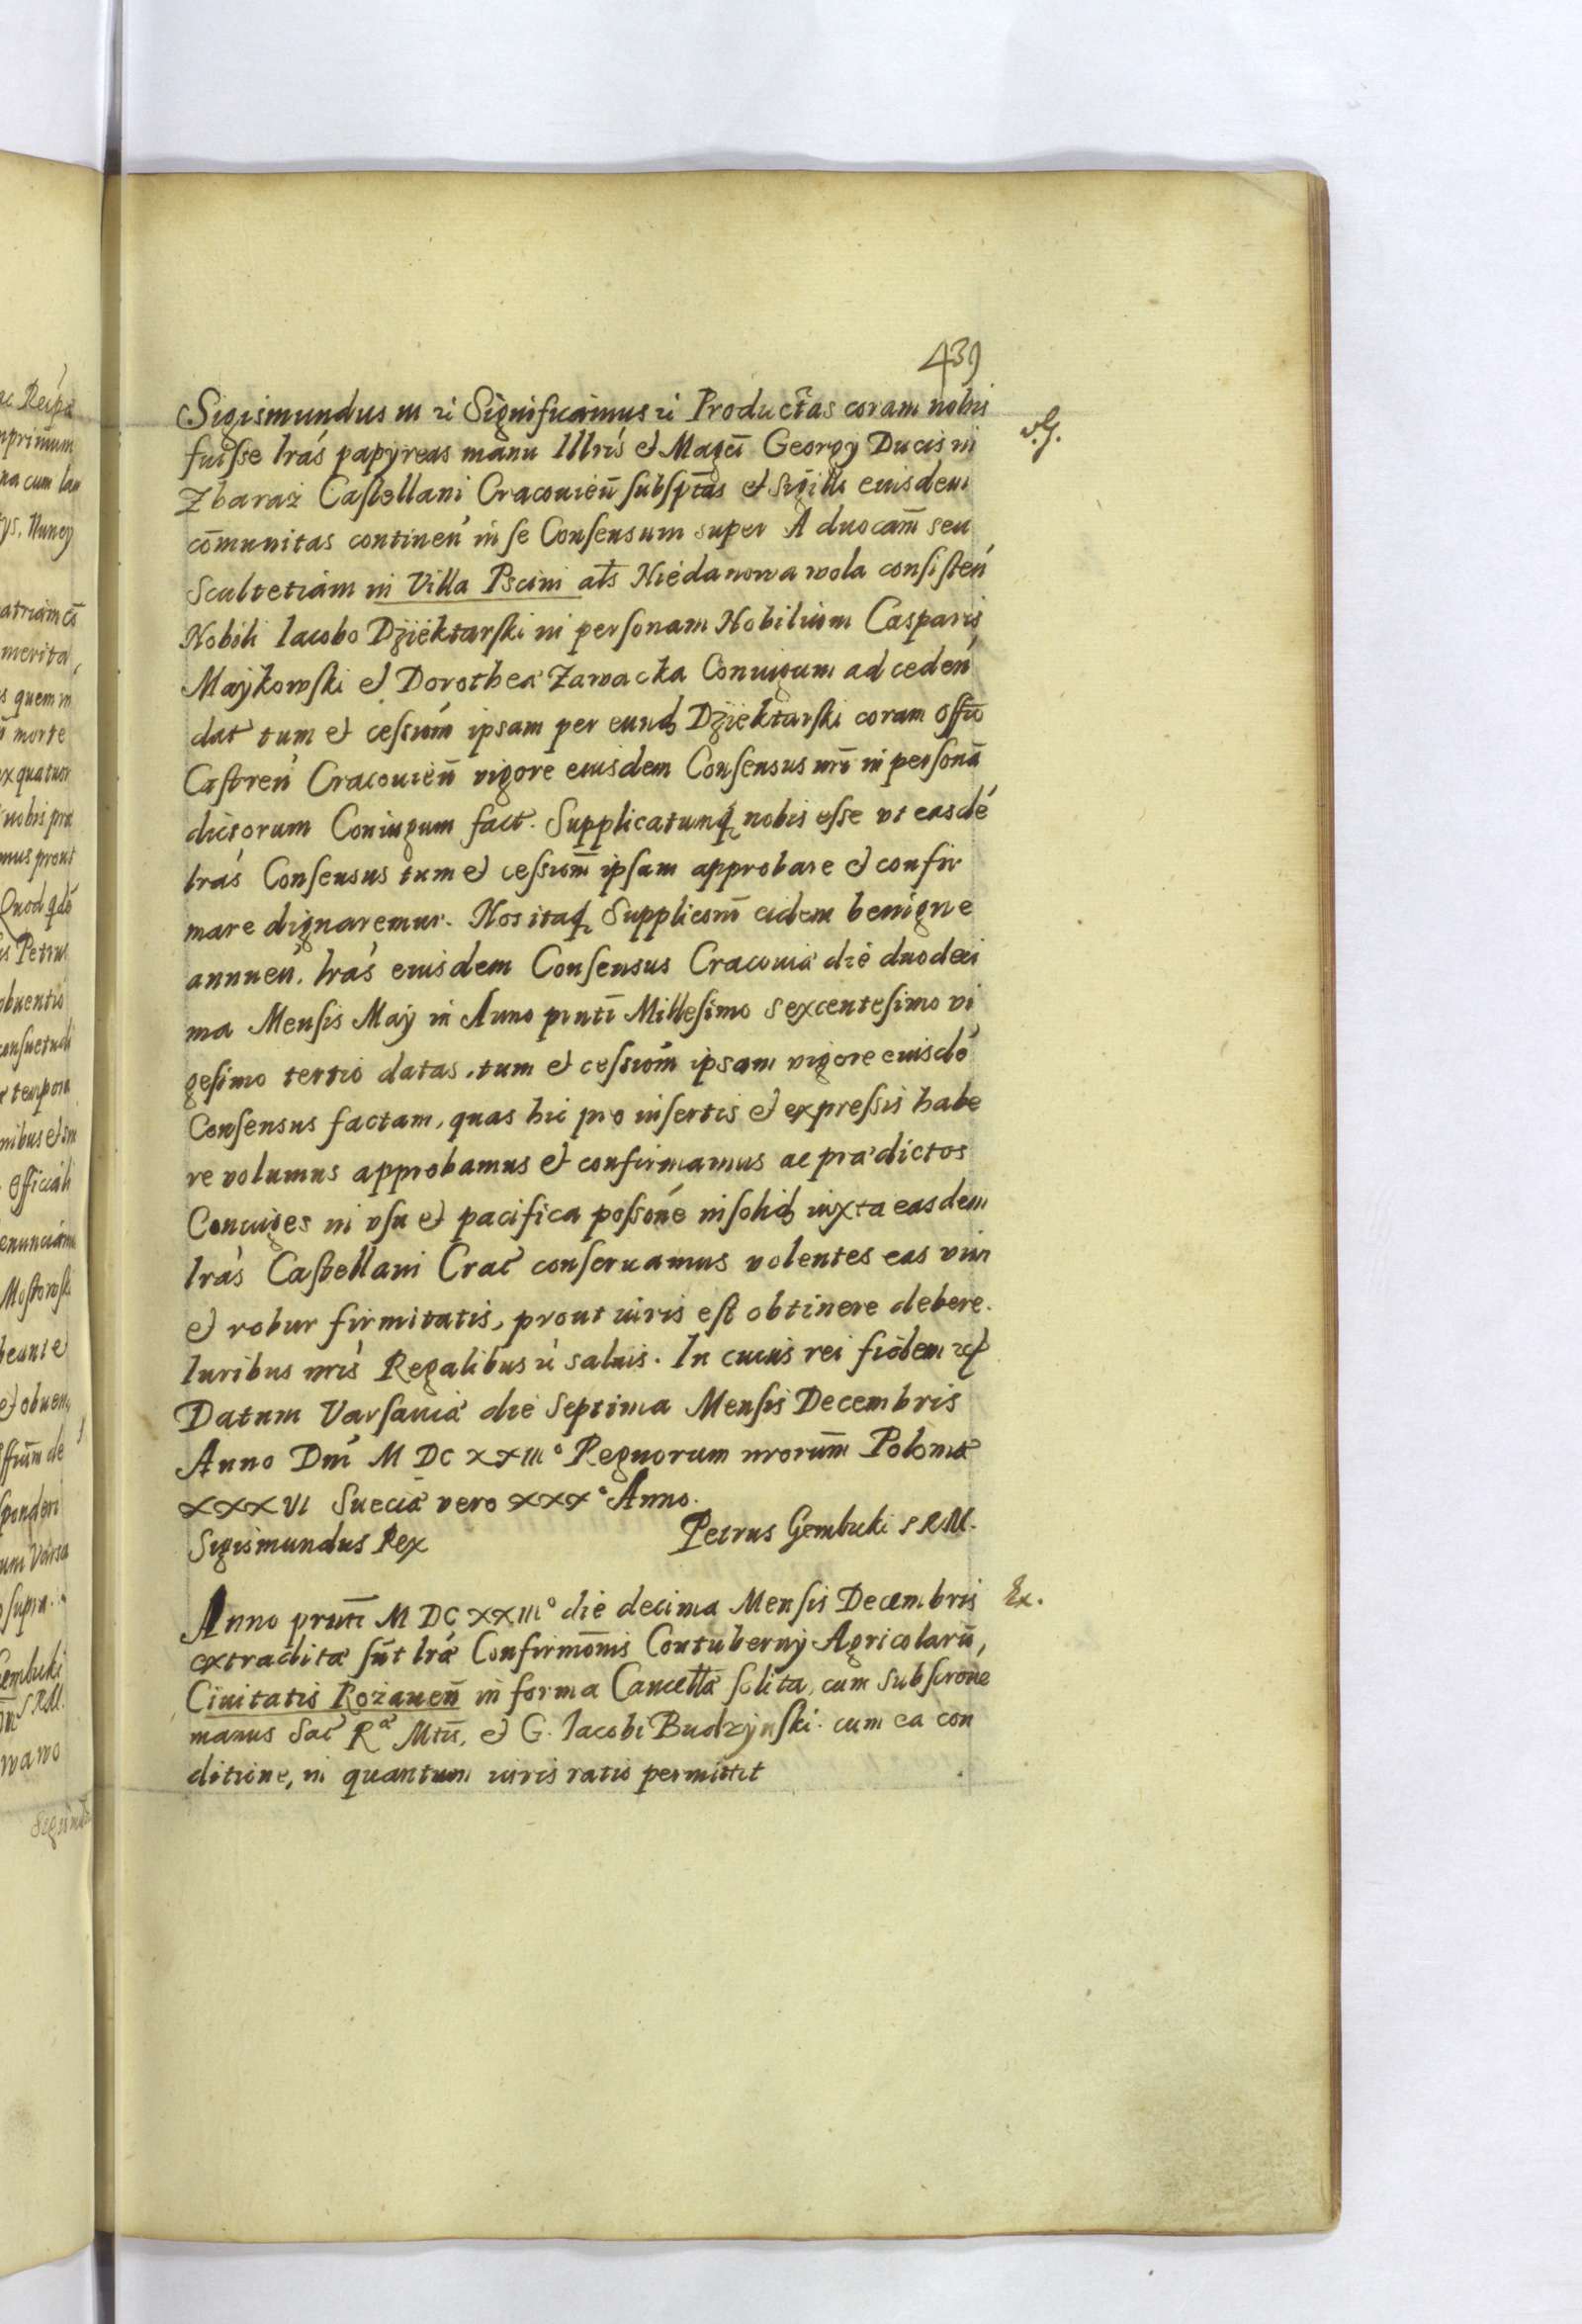 439
Sigismundus III ꝛc Significamus ꝛc Productas coram nobis
fuiſſe lrás papyreas manu Illris et Magci Georgy Ducis in
Zbaraż Caſtellani Cracouien̄ ſubſptas et sigillo eiusdem
com̄unitas continen̄ in ſe Conſensum super Aduocam̄ seu
Scultetiam in Villa Pscini als Niedanowa wola conſiſten̄
Nobili Iacobo Dziektarſki in perſonam Nobilium Casparis
Maÿkowſki et Dorotheæ Zawacka Coniugum ad ceden̄
dat tum et ceſsióm ipsam per eund Dziektarſki coram offo
Caſtren̄ Cracouien̄ vigore eiusdem Conſensus nr̄i in perſonā
dictorum Coniugum fact. Supplicatumq nobis eſſe vt easdé
lrás Conſensus tum et ceſsiom̄ ipſam approbare et confir
mare dignaremur. Nos itaq Supplicom̄ eidem benigne
annuen̄. lrás eiusdem Conſensus Cracouiæ die duodeci
ma Menſis Maÿ in Anno pn̄ti Milleſimo sexcenteſimo vi
geſimo tertio datas, tum et ceſsióm ipsam vigore eiusdé
Conſensus factam, quas hic pro inſertis et expreſsis habe
re volumus approbamus et confirmamus ac prædictos
Coniuges in vſu et pacifica poſsoné in ſolid iuxta easdem
lrás Caſtellani Crac conſeruamus volentes eas vim
et robur firmitatis, prout iuris eſt obtinere debere.
Iuribus nris Regalibus ꝛc saluis. In cuius rei fidem ꝛc
Datum Varſauiæ die septima Menſis Decembris
Anno Dni M DC XXIIIº Regnorum nrorum̄ Poloniæ
XXXVI Sueciæ vero XXXº Anno.
Sigismundus Rex Petrus Gembicki S R M.
Anno prn̄ti M DC XXIIIº die decima Menſis Decembris Ex.
extraditæ ſūt lræ Confirmōnis Contuberny Agricolarū,
Ciuitatis Rożanen̄ in forma Cancellæ ſolita, cum subſcrone
manus Sac Ræ Mtis, et G. Iacobi Budzynſki. cum ea con
ditione, in quantum iuris ratio permittit